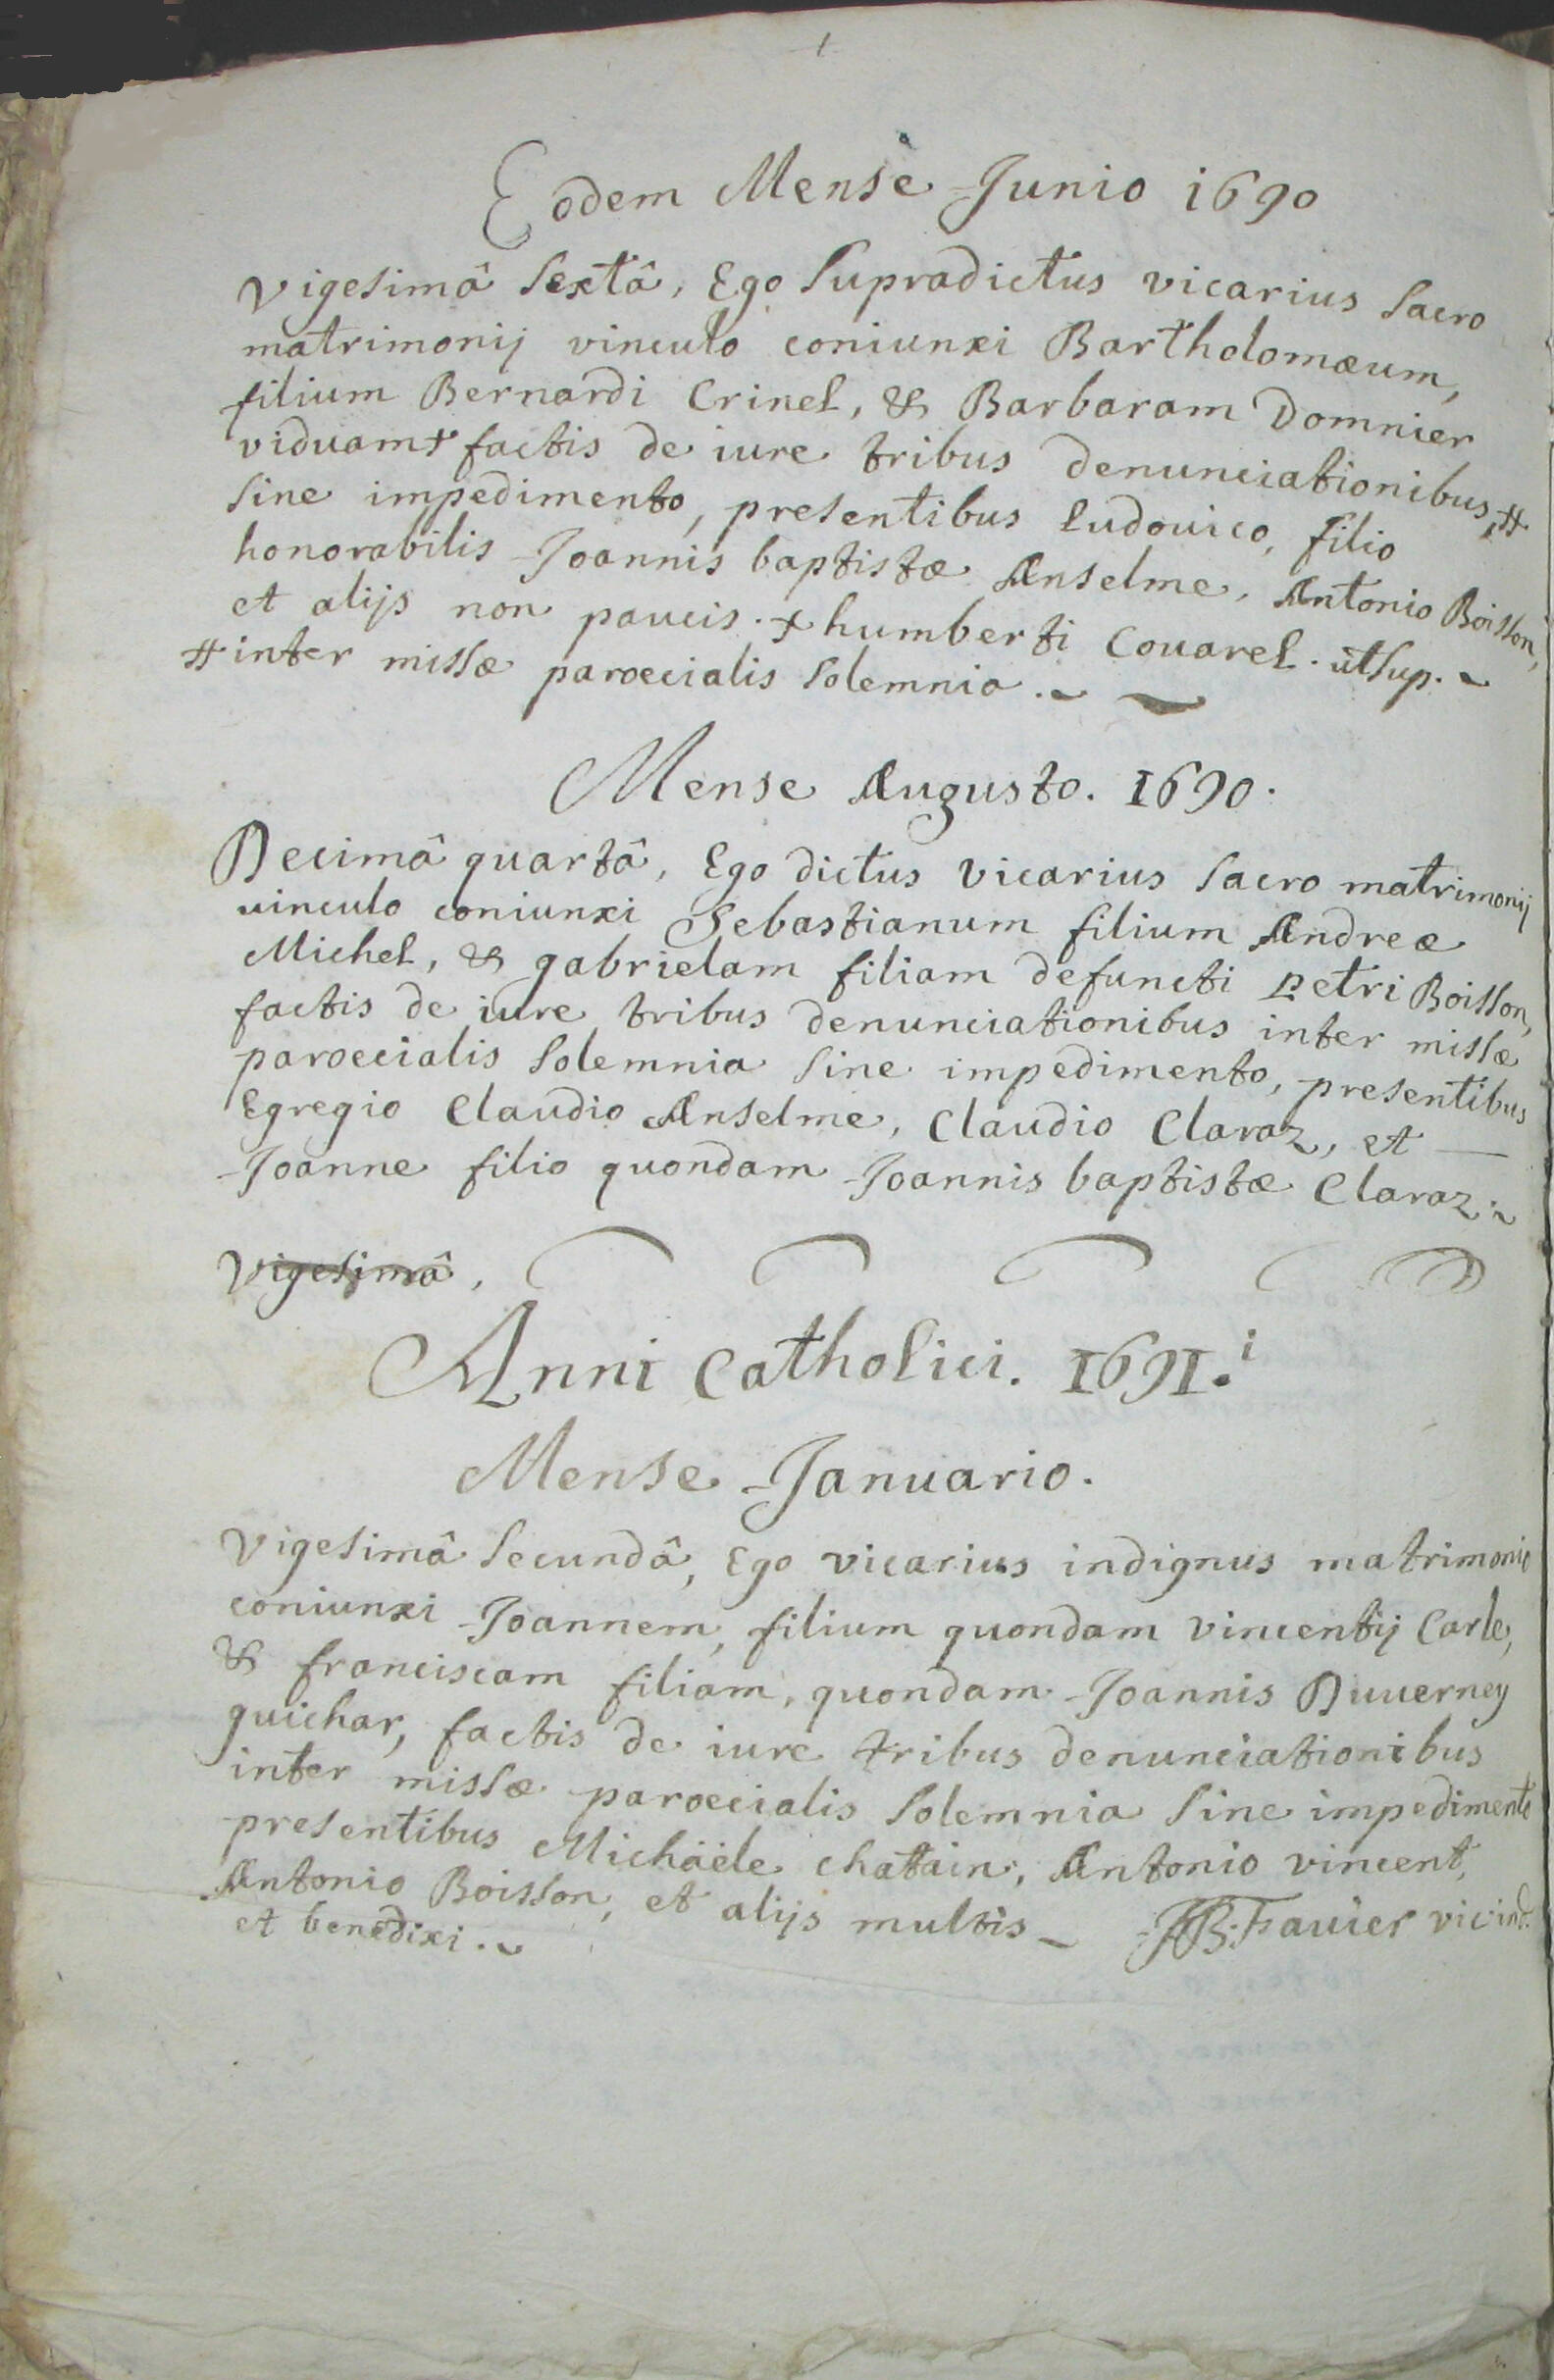 Eodem Mense Junio 1690
Vigesimâ Sextâ, Ego Supradictus vicarius Sacro
matrimonij vinculo coniunxi Bartholomæum,
filium Bernardi Crinel, & Barbaram Domnier
viduam+ factis de iure tribus denunciationibus,#
Sine impedimento, presentibus Ludouico, filio
honorabilis Joannis baptistæ Anselme, Antonio Boisson,
et alijs non paucis. + humberti Couarel. utsup.
# inter missæ paroecialis Solemnia.
Mense Augusto. 1690.
Decimâ quartâ, Ego dictus vicarius Sacro matrimonij
uinculo coniunxi Sebastianum filium Andreæ
Michel, & gabrielam filiam defuncti Petri Boisson,
factis de iure tribus denunciationibus inter missæ
paroecialis Solemnia Sine impedimento, presentibus
Egregio Claudio Anselme, Claudio Claraz, et —
Joanne filio quondam Joannis baptistæ Claraz.
Vigesimâ,
Anni Catholici. 1691.i
Mense Januario.
Vigesimâ Secundâ, Ego vicarius indignus matrimonio
coniunxi Joannem, filium quondam vincentij Carle,
& franciscam filiam, quondam Joannis Duuerney
guichar, factis de iure tribus denunciationibus
inter missæ paroecialis Solemnia Sine impedimento
presentibus Michäële chatain, Antonio vincent,
Antonio Boisson, et alijs multis JB. Fauier vic ind.
et benedixi.